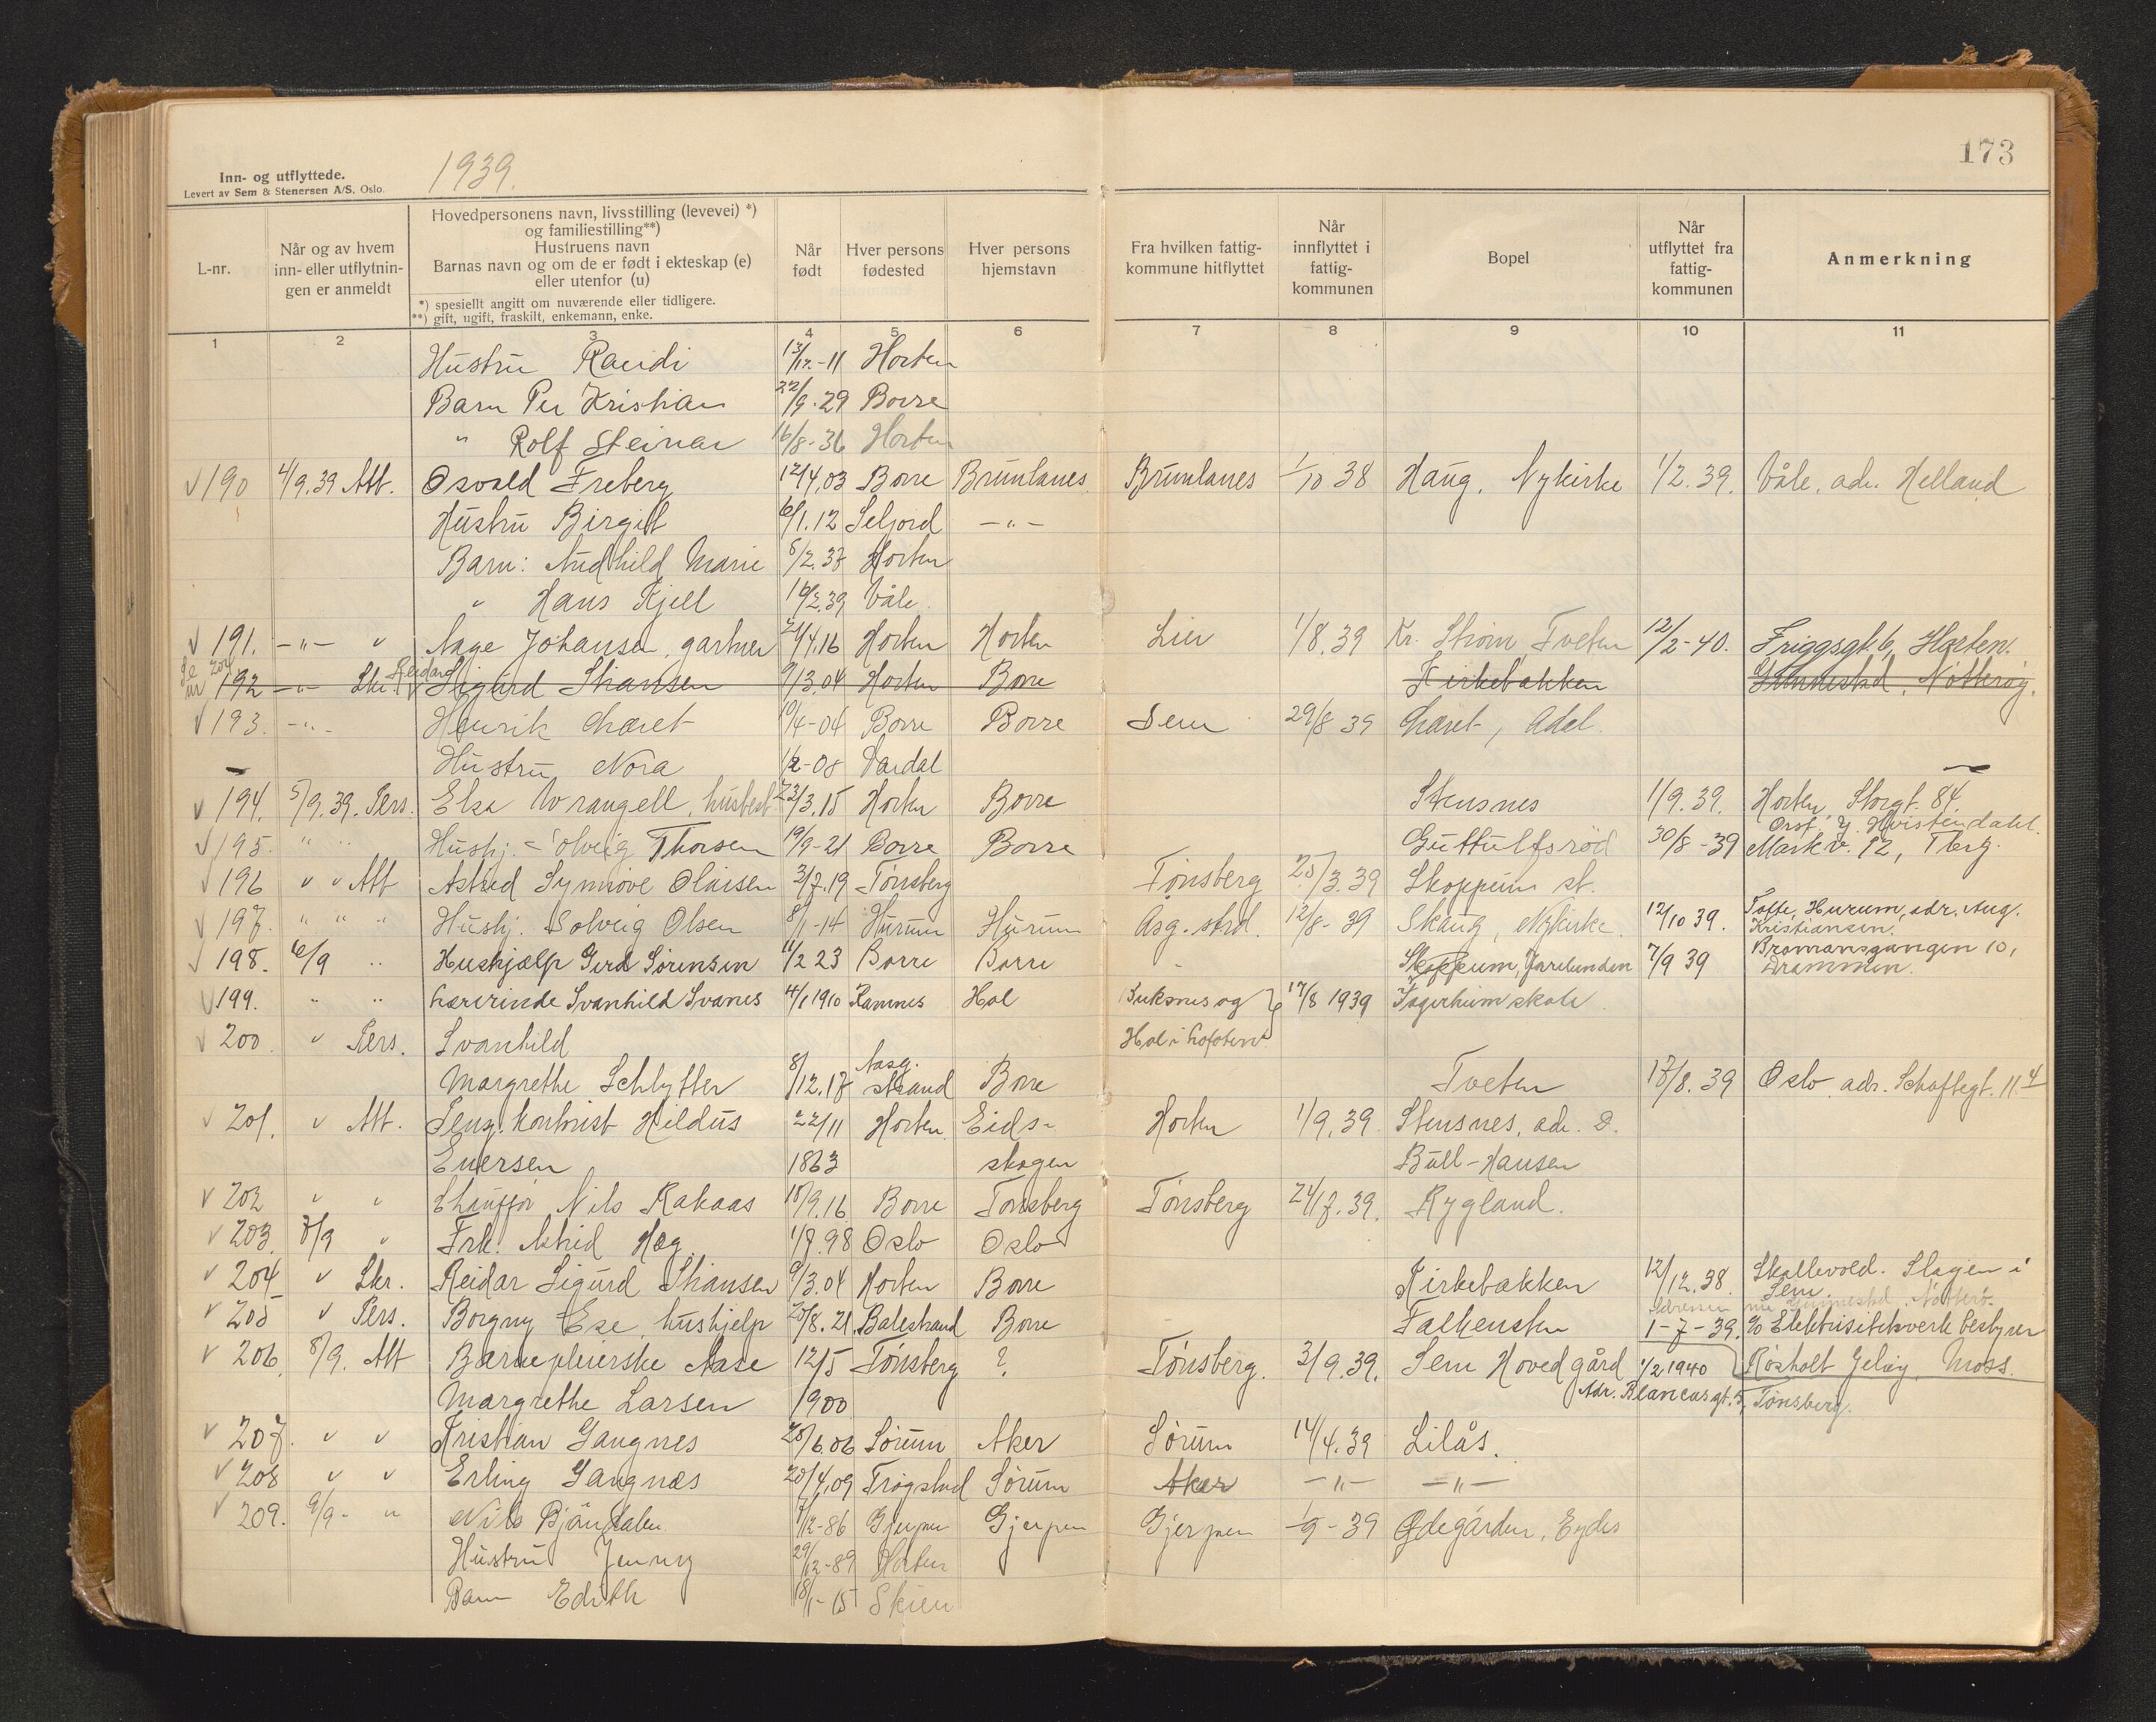 173
1939.
Inn- og utflyttede.
Levert av Sem & Stenersen A/S. Oslo.
L-nr.
Når og av hvem
inn- eller utflytnin-
gen er anmeldt
Hovedpersonens navn, livsstilling (levevei) *)
og familiestilling**)
Hustruens navn
Barnas navn og om de er født i ekteskap (e)
eller utenfor (u)
*) spesiellt angitt om nuværende eller tidligere.
**) gift, ugift, fraskilt, enkemann, enke.
Når
født
Hver persons
fødested
Hver persons
hjemstavn
Fra hvilken fattig-
kommune hitflyttet
Når
innflyttet i
fattig-
kommunen
Bopel
Når
utflyttet fra
fattig-
kommunen
Anmerkning
1 2 3 4 5 6 7 8 9 10 11
Hustru Randi 13/12-11 Horten
Barn Per Kristian 22/9-29 Borre
" Rolf Steinar 16/8-36 Horten
190 4/9.39 Att. Osvald Freberg 12/4.03 Borre Brunlanes Brunlanes 1/10 38 Haug, Nykirke 1/2.39. Våle, adr. Helland
Hustru Birgit 6/1.12 Seljord -"-
Barn: Audhild Marie 5/2.37 Horten
" Hans Kjell 16/2.39 Våle
191. -"- " Aage Johansen, gartner 21/4.16 Horten Horten Lier 1/8.39 Kr. Strøm, Tveten 12/2-40. Friggsgt. 6, Horten.
Se nr 204
192 -"- Skr. Reidar Sigurd Shansen 9/3.04 Horten Borre Kirkebakken Gunnestad, Nøtterøy.
193. -"- Henrik Løvet 10/4-04 Borre Borre Sem 29/8 39 Løvet, Adal.
Hustru Nora 1/2-08 Vardal
194. 5/9.39. Pers. Elsa Wrangell, husbest. 23/3.15 Horten Borre Stensnes 1/9.39. Horten, Storgt. 84.
195. " " Hushj. Solveig Thorsen 19/9-21 Borre Borre Guttulfsrød 30/8-39 Orsf. Y. Hvistendahl. Markv. 12, Tbrg.
196 " " Att Astrid Synnøve Olaisen 3/7.19 Tønsberg Tønsberg 25/3.39 Skoppum st.
197. " " " Hushj. Solveig Olsen 8/1-14 Hurum Hurum Åsg. strd. 12/8-39 Skaug, Nykirke. 12/10 39. Tofte, Hurum, adr. Aug. Kristiansen.
198. 6/9 " Hushjælp Gerd Sørensen 11/2 23 Borre Borre - Skoppum, Jarelunden 7/9 39 Bromansgangen 10, Drammen.
199. " " Lærerinde Svanhild Svanes 4/1 1910 Ramnes Hol Buksnes og 17/8 1939 Fagerheim skole
Hol i Lofoten
200. " Pers. Svanhild
Margrethe Schlytter 8/12.17 Aasg. strand Borre Tveten 17/8.39 Oslo adr. Schaftegt. 11.4
201. " Att. Peng. kontrist Hildus 22/11 Horten. Eids- Horten 1/9.39. Stensnes, adr. D.
Euersen 1863 skogen Bull-Hansen
202 " " Chauffør Nils Rakaas 18/9.16 Borre Tønsberg Tønsberg 24/7.39. Rygland.
203. 7/9 " Frk. Astrid Høg 1/7.98 Oslo Oslo
204 " Skr. Reidar Sigurd Shansen 9/3.04 Horten Borre Kirkebakken 12/12.38. Skallevold. Slagen i Sem.
Adressen nu Gunnestad, Nøtterø.
205 " Pers. Borgny Ese, hushjelp 25/8.21. Balestrand Borre Falkensten 1-7-39. c/o Elektrisitetsverk bestyrer
Røsholt Jeløy, Moss.
206. 8/9. Att Barnepleierske Aase 12/5 Tønsberg ? Tønsberg. 3/9.39. Sem Hovedgård 1/2 1940
Margrethe Larsen 1900 Adr. Blancasgt. 5, Tønsberg.
207. " " Kristian Gangnes 28/6.06 Sørum Aker Sørum 14/4.39 Lilås.
208 " " Erling Gangnæs 20/4.09 Trøgstad Sørum Aker -"- -"-
209. 9/9- " Nils Bjåndalen 7/12-86 Gjerpen Gjerpen Gjerpen 1/9-39 Ødegården, Eydes
Hustru Jenny 29/12-89 Horten
Barn Edith 18/1-15 Skien